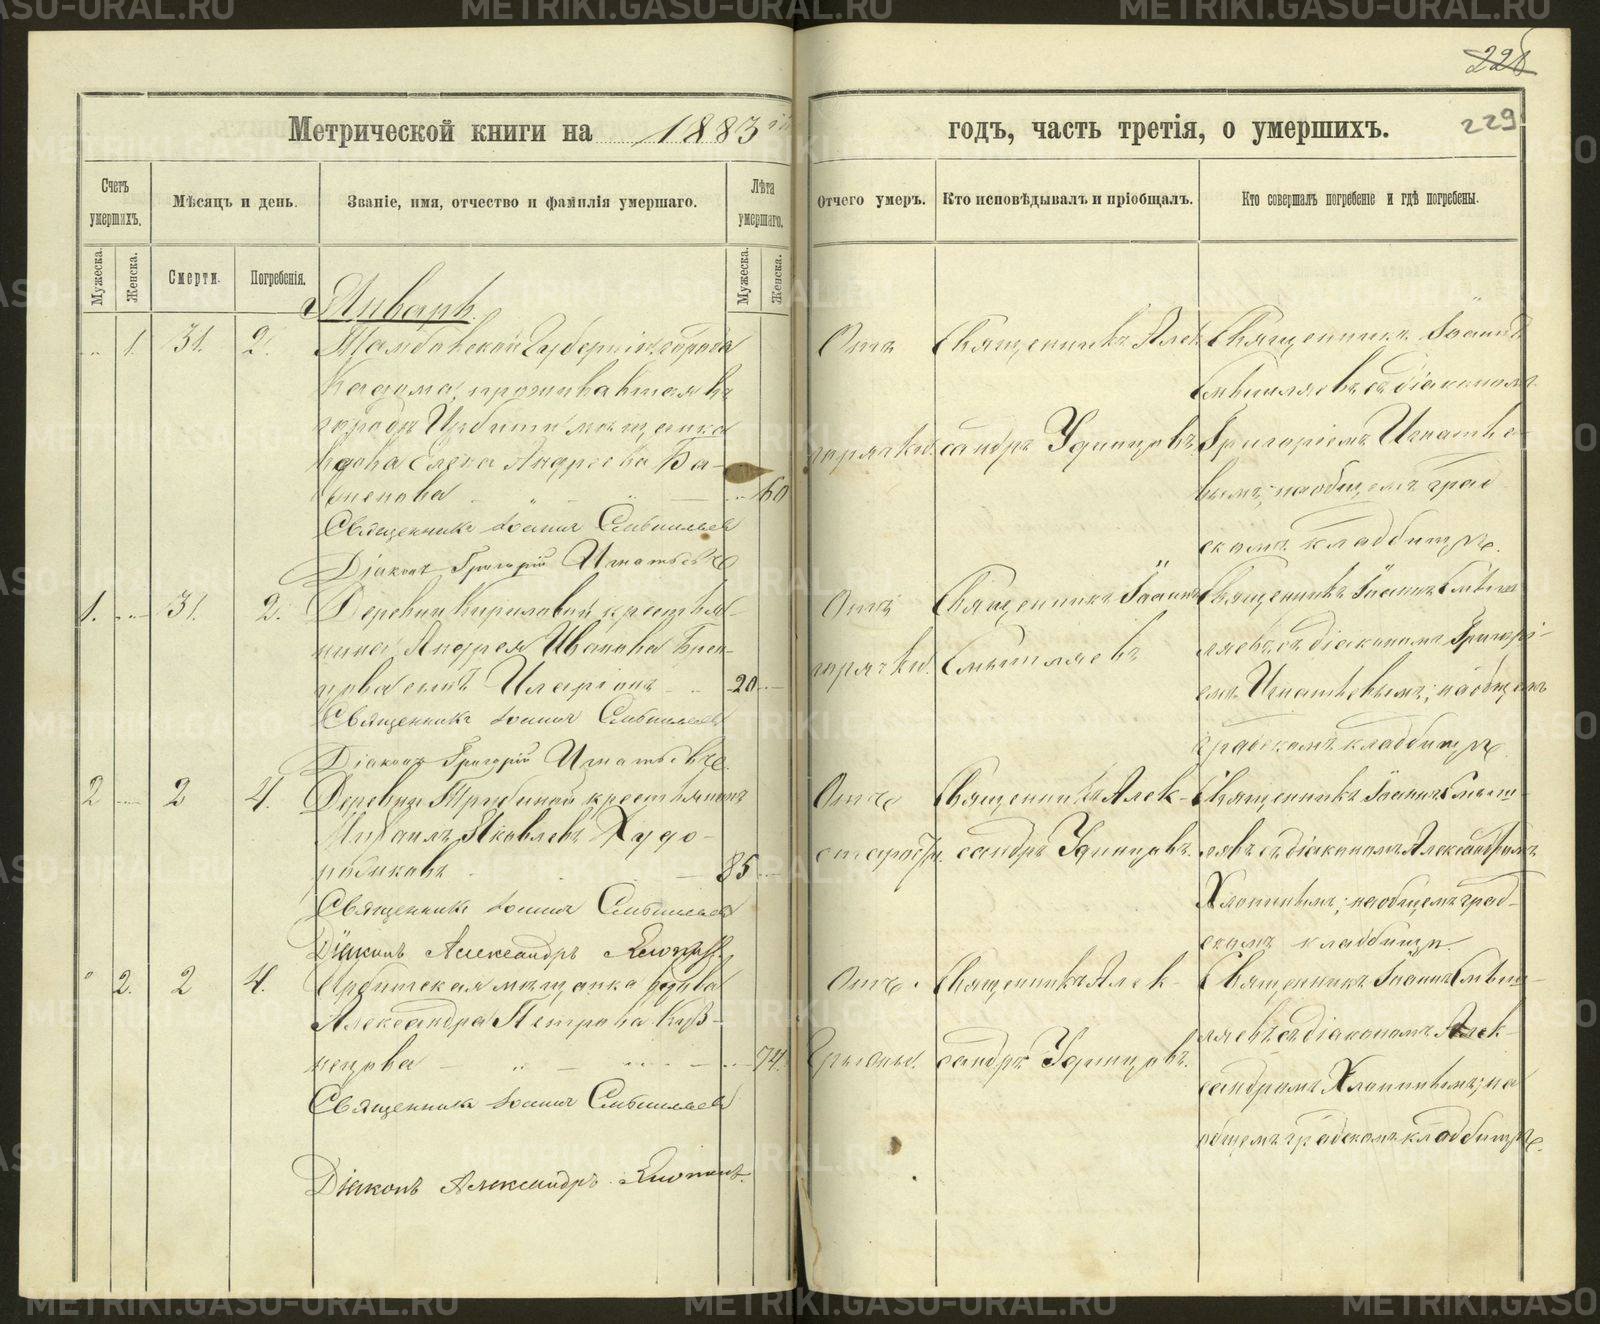 226
229
Метрической книги на 1883й
годъ, часть третія, о умершихъ.
Счетъ умершихъ.
Мѣсяцъ и день.
Званіе, имя, отчество и фамилія умершаго.
Лѣта умершаго.
Отчего умеръ.
Кто исповѣдывалъ и пріобщалъ.
Кто совершалъ погребеніе и гдѣ погребены.
Мужеска.
Женска.
Смерти.
Погребенія.
Мужеска.
Женска.
Январь.
1. 31. 2.
Тамбовской Губерніи, города
Кадома, проживавшая въ
городѣ Ирбити мѣщанка
вдова Елена Андреева
60
Священникъ Іоаннъ Смышляевъ
Діаконъ Григорій Игнатьевъ
Отъ
горячки.
Священникъ Алек
сандръ Удинцовъ
Священникъ Іоаннъ
Смышляевъ съ діакономъ
Григоріемъ Игнатье-
вымъ; на общемъ град
скомъ кладбищѣ.
1. 31. 2.
Деревни Кириловой крестья-
нина Андрея Иванова
сынъ Иларіонъ
20
Священникъ Іоаннъ Смышляевъ
Діаконъ Григорій Игнатьевъ
Отъ
горячки.
Священникъ Іоаннъ
Смышляевъ
Священникъ Іоаннъ Смыш
ляевъ съ діакономъ Григорі-
емъ Игнатьевымъ; на общемъ
градскомъ кладбищѣ.
2 2 4.
Деревни Трубиной крестьянинъ
Михаилъ Яковлевъ Худо-
85
Священникъ Іоаннъ Смышляевъ
Діаконъ Александръ Хлопинъ
Отъ
старости.
Священникъ Алек-
сандръ Удинцовъ.
Священникъ Іоаннъ Смыш-
ляевъ съ діакономъ Александромъ
Хлопинымъ; на общемъ град-
скомъ кладбищѣ.
2. 2 4.
Ирбитская мѣщанка вдова
Александра Петрова Куз-
нецова
74.
Священникъ Іоаннъ Смышляевъ
Діаконъ Александръ Хлопинъ.
Отъ
грыжи.
Священникъ Алек-
сандръ Удинцовъ.
Священникъ Іоаннъ Смыш-
ляевъ съ діакономъ Алек-
сандромъ Хлопинымъ; на
общемъ градскомъ кладбищѣ.
METRIKI.GASU-URAL.RU